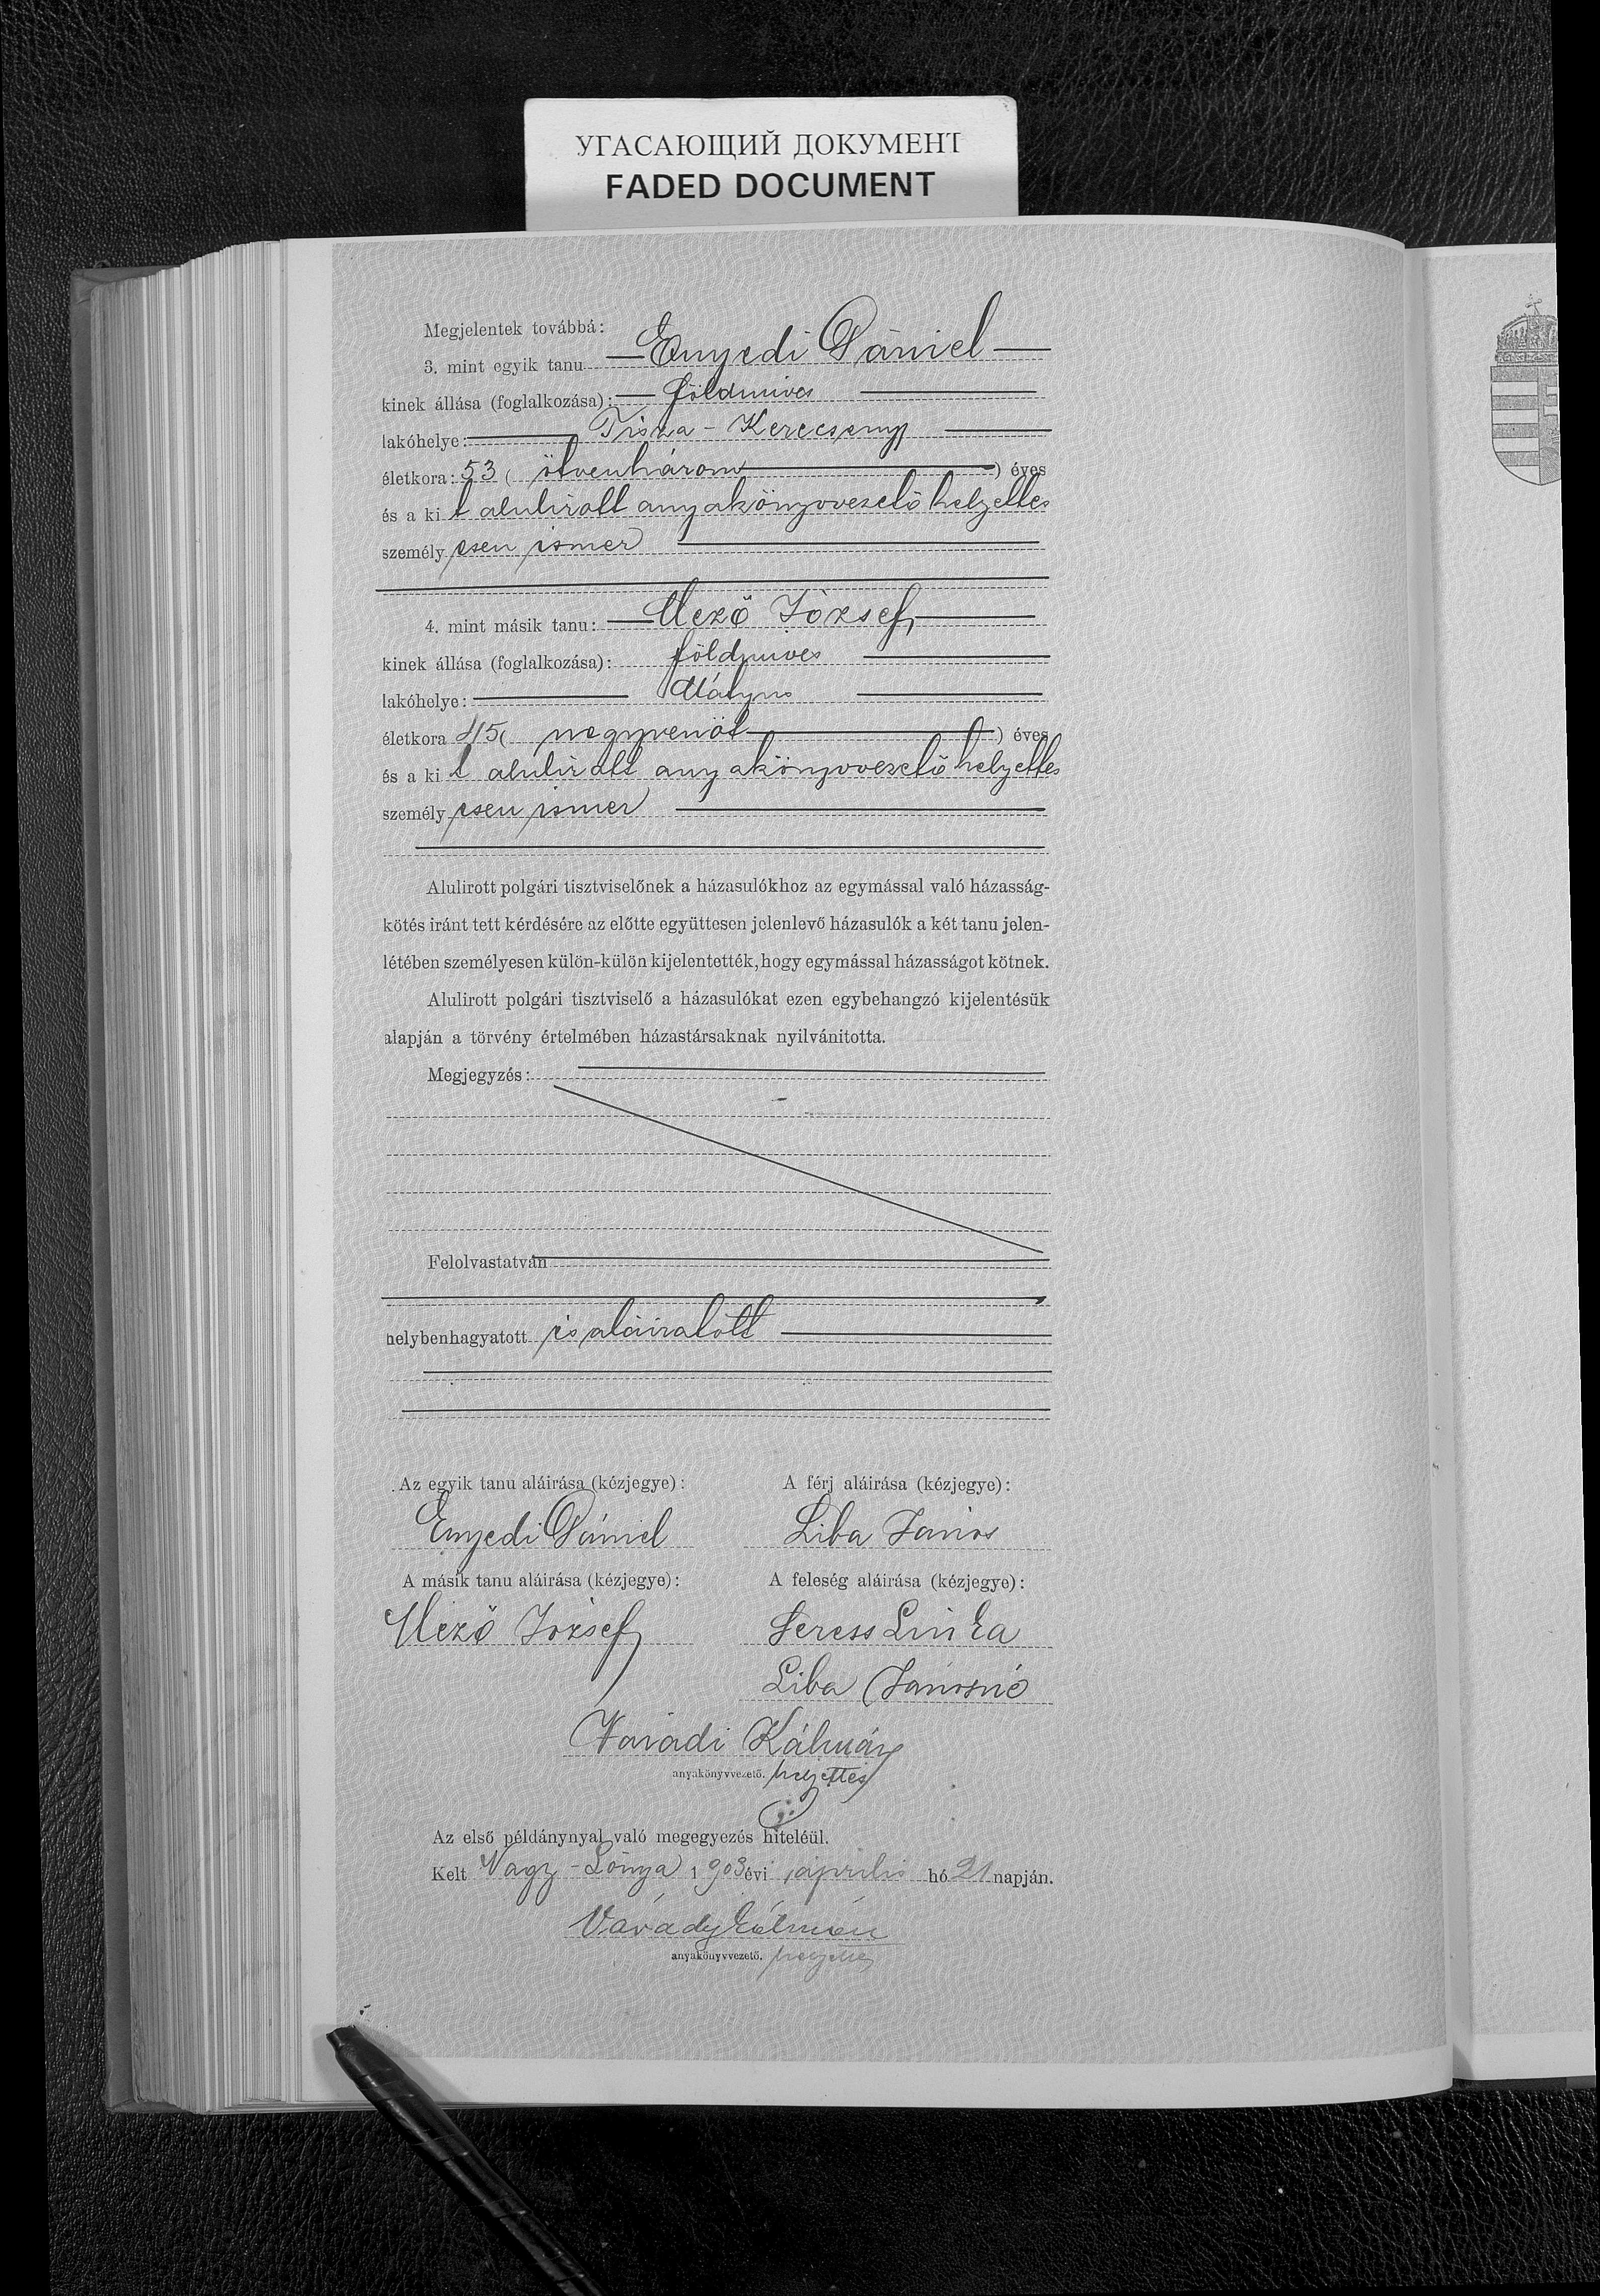 УГАСАЮЩИЙ ДОКУМЕНТ
FADED DOCUMENT
Megjelentek továbbá:
3. mint egyik tanu Enyedi Dániel
kinek állása (foglalkozása): földmives
lakóhelye: Tisza-Kerecseny
életkora: 53 ( ötvenhárom ) éves
és a ki t alulirott anyakönyvvezető helyettes
személyesen ismer
4. mint másik tanu: Mező József
kinek állása (foglalkozása): földmives
lakóhelye: Mátyus
életkora 45 ( negyvenöt ) éves
és a ki t alulirott anyakönyvvezető helyettes
személyesen ismer
Alulirott polgári tisztviselőnek a házasulókhoz az egymással való házasság-
kötés iránt tett kérdésére az előtte együttesen jelenlevő házasulók a két tanu jelen-
létében személyesen külön-külön kijelentették, hogy egymással házasságot kötnek.
Alulirott polgári tisztviselő a házasulókat ezen egybehangzó kijelentésük
alapján a törvény értelmében házastársaknak nyilvánitotta.
Megjegyzés:
Felolvastatván
helybenhagyatott és aláiratott
Az egyik tanu aláirása (kézjegye): A férj aláirása (kézjegye):
Enyedi Dániel Liba János
A másik tanu aláirása (kézjegye): A feleség aláirása (kézjegye):
Mező József Seress Linka
Liba Jánosné
Váradi Kálmán
anyakönyvvezető. helyettes
Az első példánynyal való megegyezés hiteléül.
Kelt Nagy-Lónya 1903 évi április hó 21 napján.
Várady Kálmán
anyakönyvvezető. helyettes